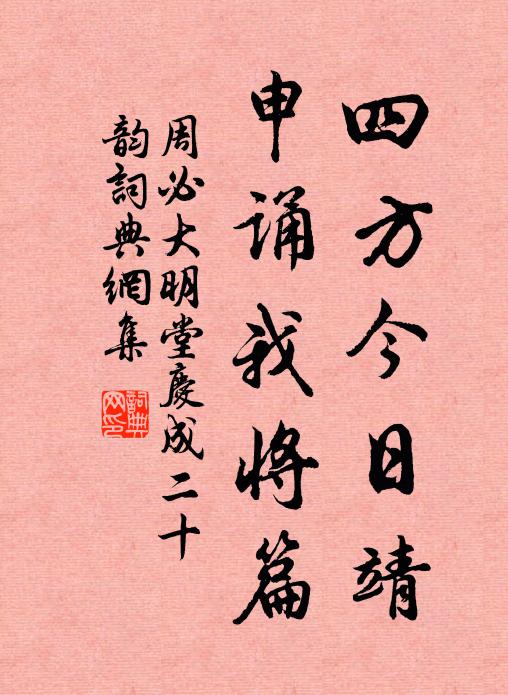 四方今日靖
申诵我将篇
周必大明堂慶成二十
韵詞典網集
詞典网印